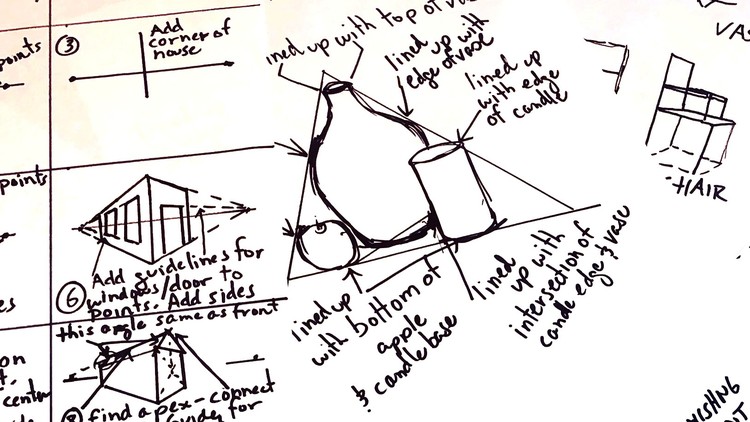 points
③
Add
corner of
house
points
⑥
Add guidelines for
windows/door to
points. Add sides
this angle same as front
es
on
t.
center
⑧ find apex-connect
for
ined up with top of vas
lined up with
edge of vase
lined up
with edge
of candle
lined up
with bottom of
apple
& candle base
lined
up with
intersection of
candle edge & vase
VAS
HAIR